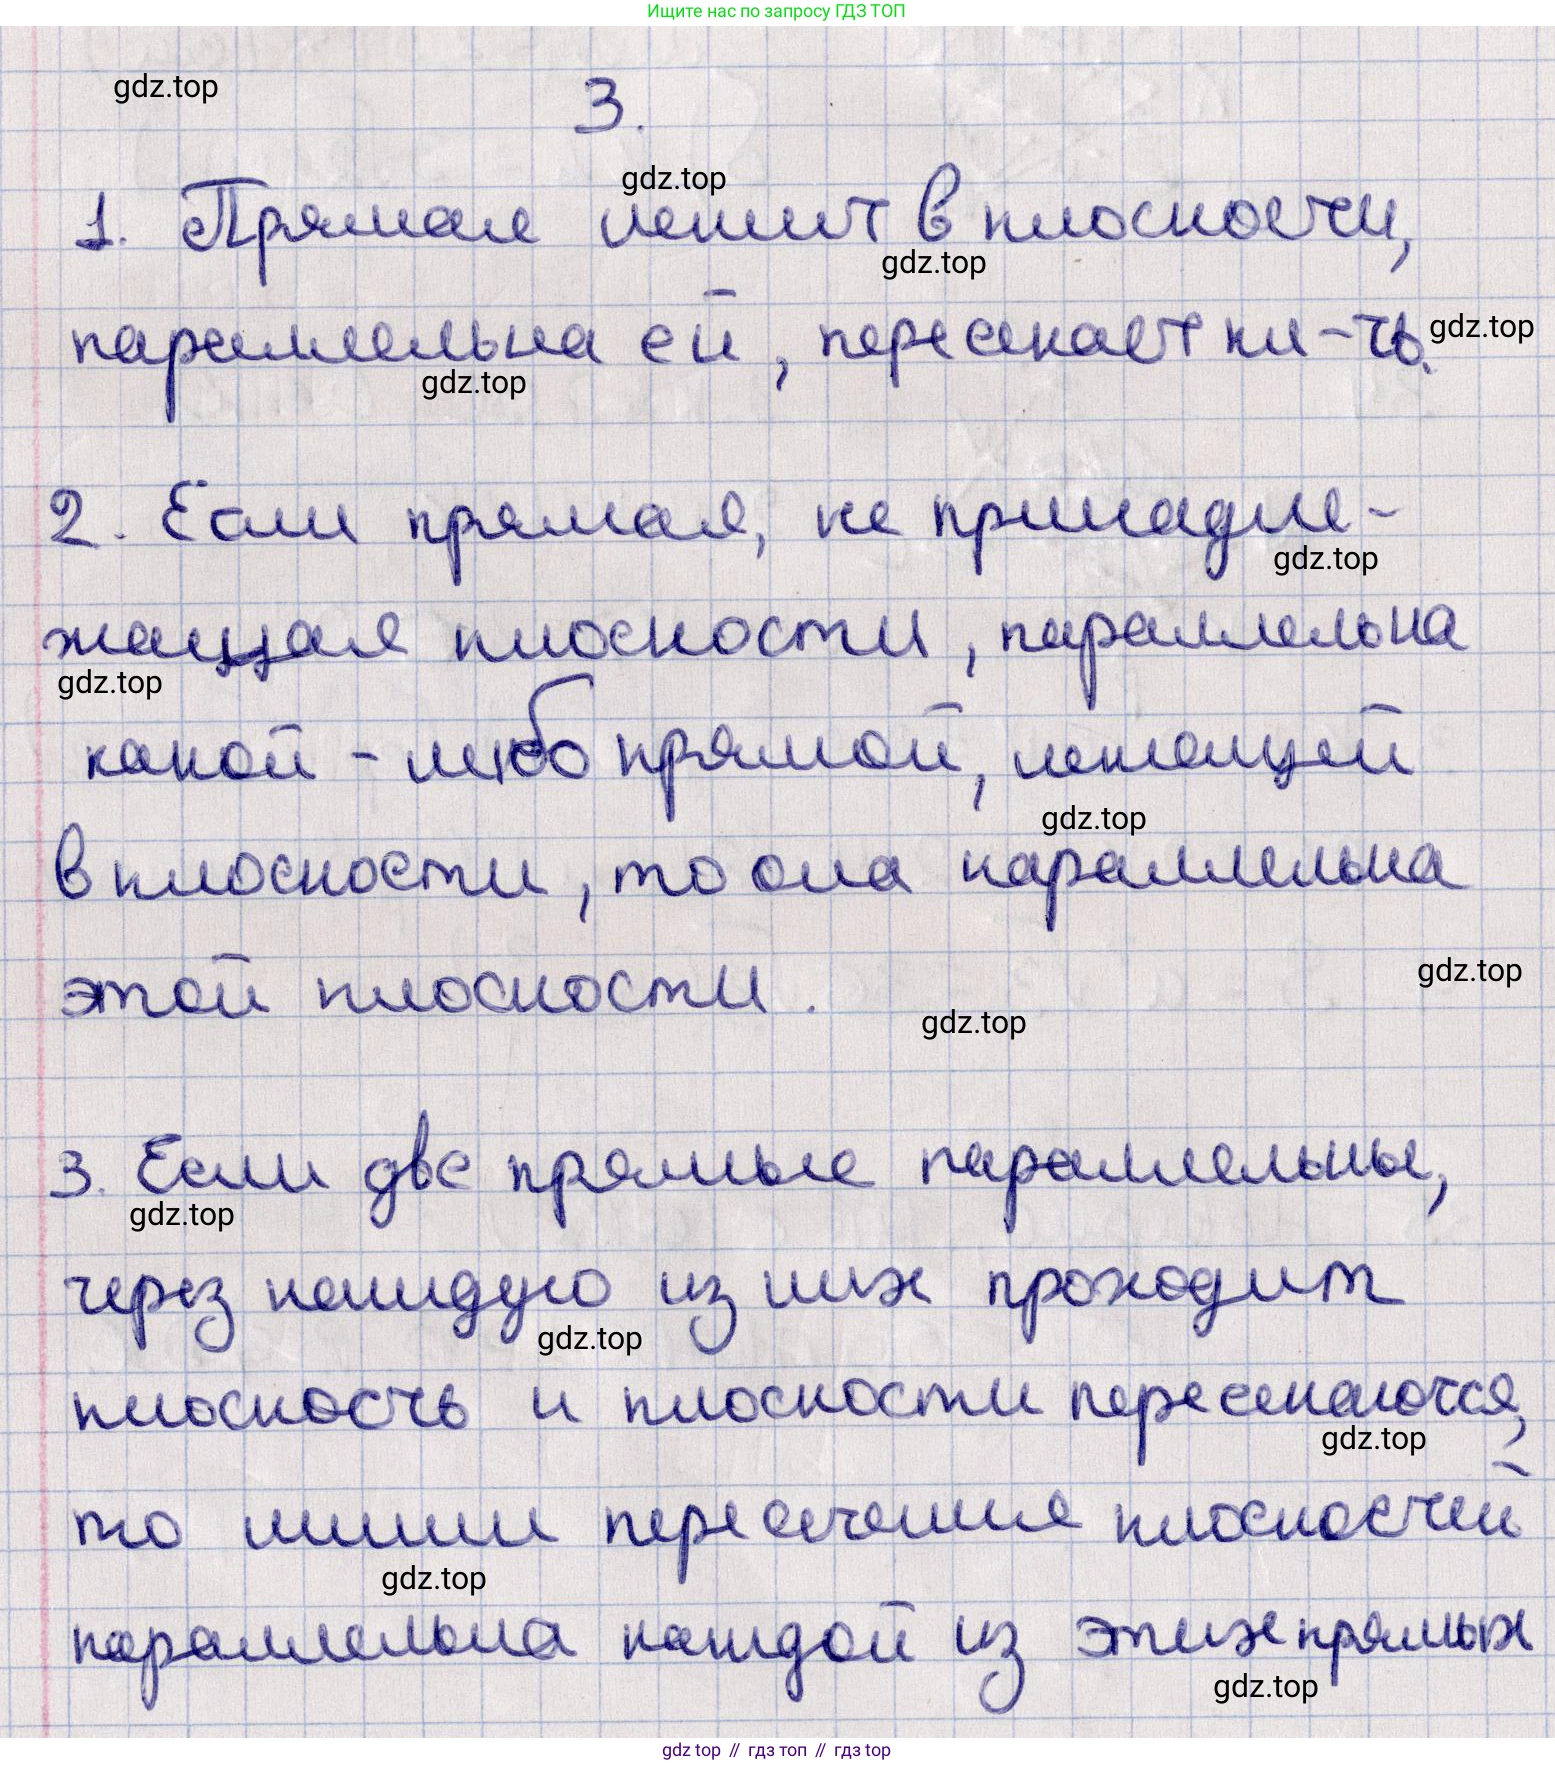 Ищите нас по запросу ГДЗ ТОП
gdz.top
3.
gdz.top
1. Прямая лежит в плоскости,
gdz.top
параллельна ей, пересекает пл-ть.
gdz.top
gdz.top
2. Если прямая, не принадле-
gdz.top
жащая плоскости, параллельна
gdz.top
какой-либо прямой, лежащей
gdz.top
в плоскости, то она параллельна
этой плоскости.
gdz.top
gdz.top
3. Если две прямые параллельны,
gdz.top
через каждую из них проходит
gdz.top
плоскость и плоскости пересекаются,
gdz.top
то линии пересечения плоскостей
gdz.top
параллельна каждой из этих прямых
gdz.top
gdz top // гдз топ // гдз top